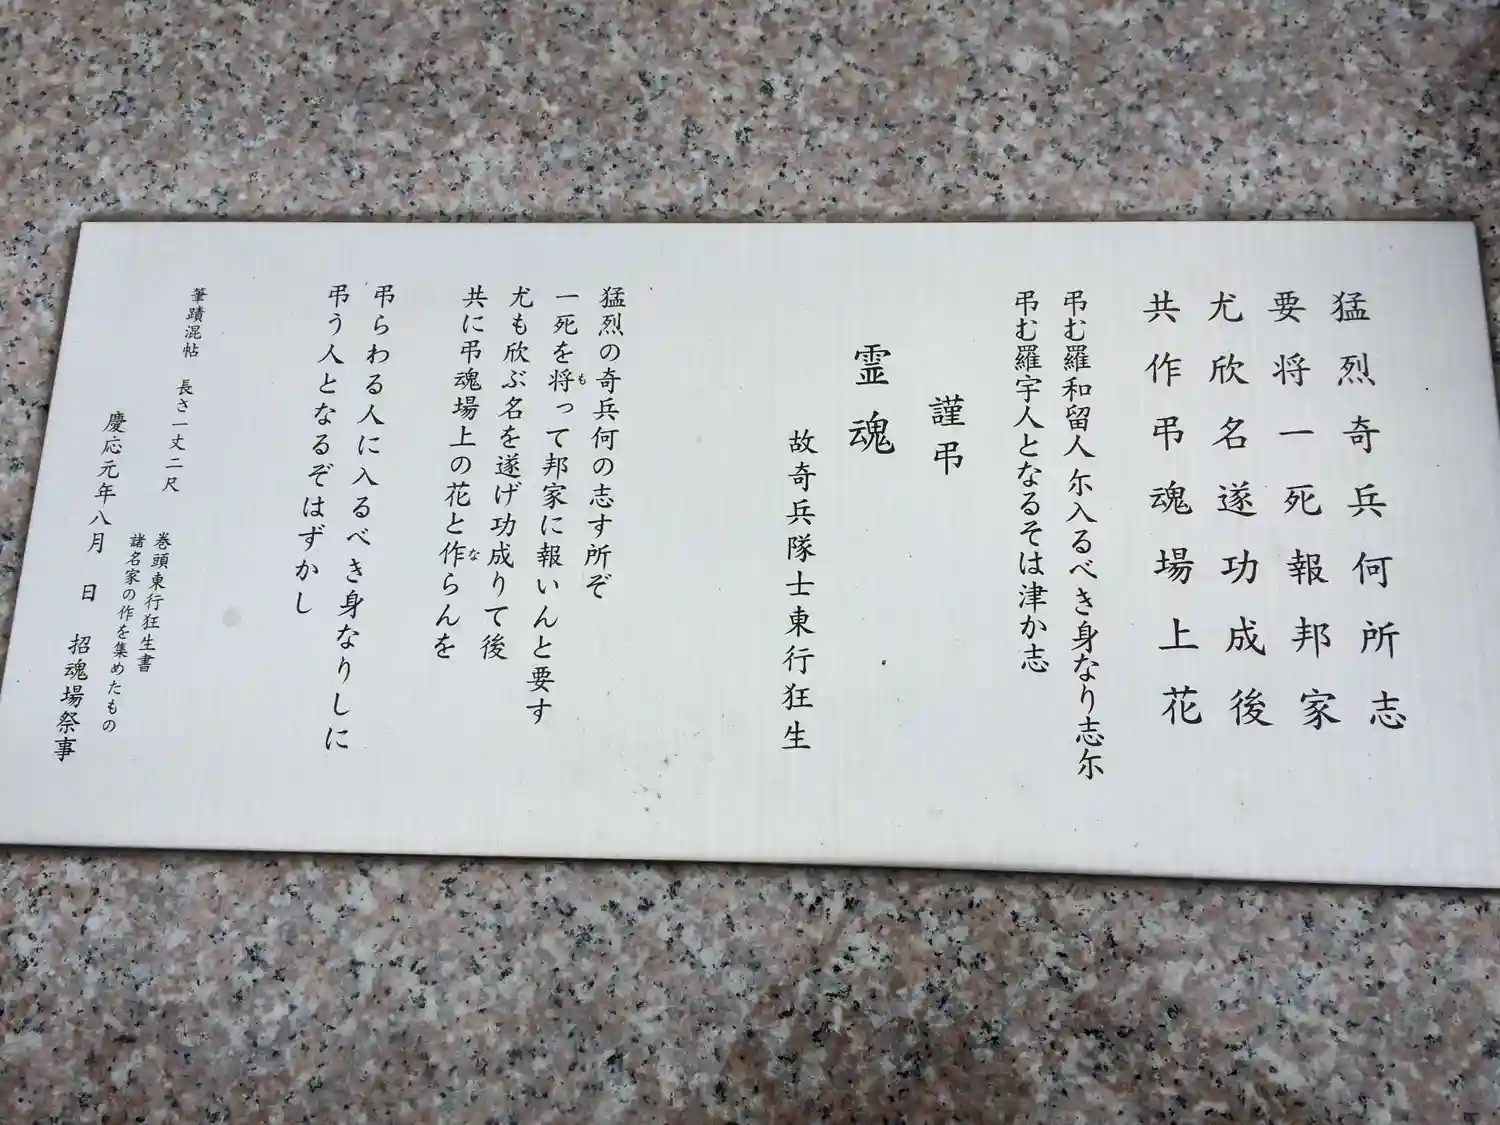 猛烈奇兵何所志
要将一死報邦家
尤欣名遂功成後
共作弔魂場上花
弔む羅和留人尓入るべき身なり志尓
弔む羅宇人となるそは津か志
謹弔
霊魂
故奇兵隊士東行狂生
猛烈の奇兵何の志す所ぞ
一死を将って邦家に報いんと要す
も
尤も欣ぶ名を遂げ功成りて後
共に弔魂場上の花と作らんを
な
弔らわる人に入るべき身なりしに
弔う人となるぞはずかし
筆蹟混帖 長さ一丈二尺
巻頭東行狂生書
諸名家の作を集めたもの
慶応元年八月 日 招魂場祭事